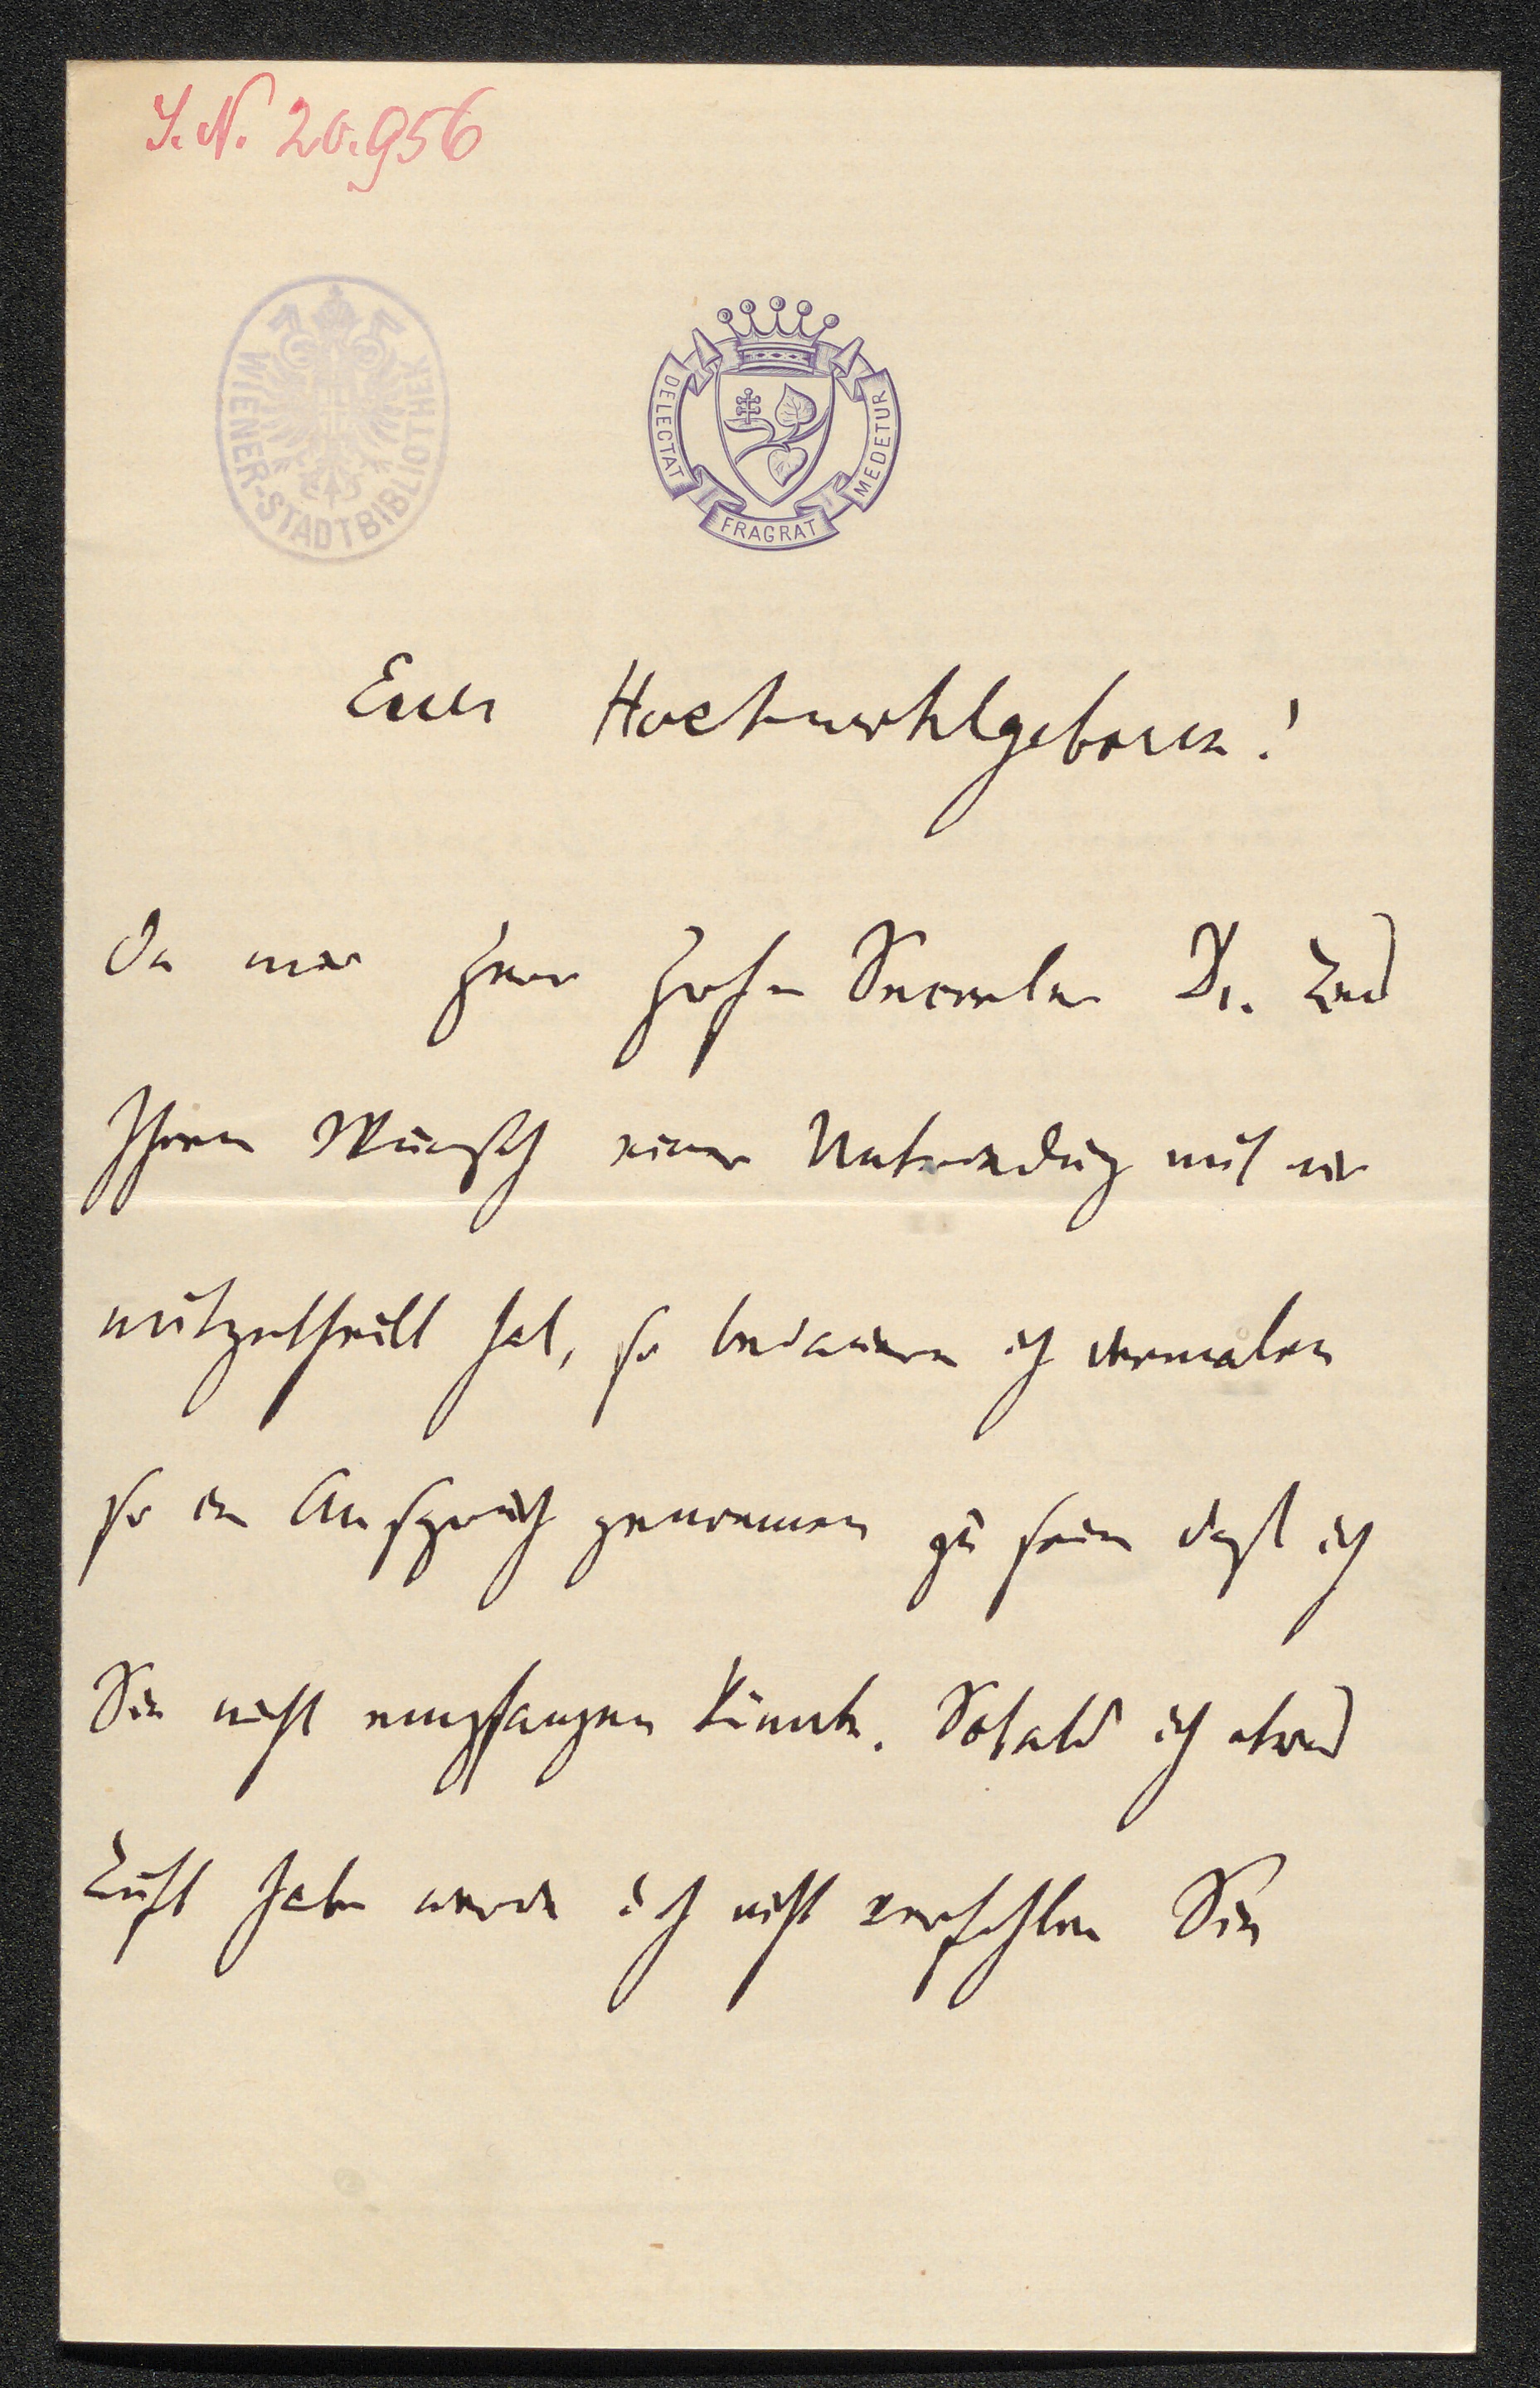 I. N. 20.956
WIENER-STADTBIBLIOTHEK
DELECTAT FRAGRAT MEDETUR
Euer Hochwohlgeboren!
Da mir Herr Hof- Secretär Dr.
Ihren Wunsch einer Unterredung mit mir
mitgetheilt hat, so bedauere ich dermalen
so in Anspruch genommen zu sein daß ich
Sie nicht empfangen könnte. Sobald ich etwas
Luft habe werde ich nicht verfehlen Sie